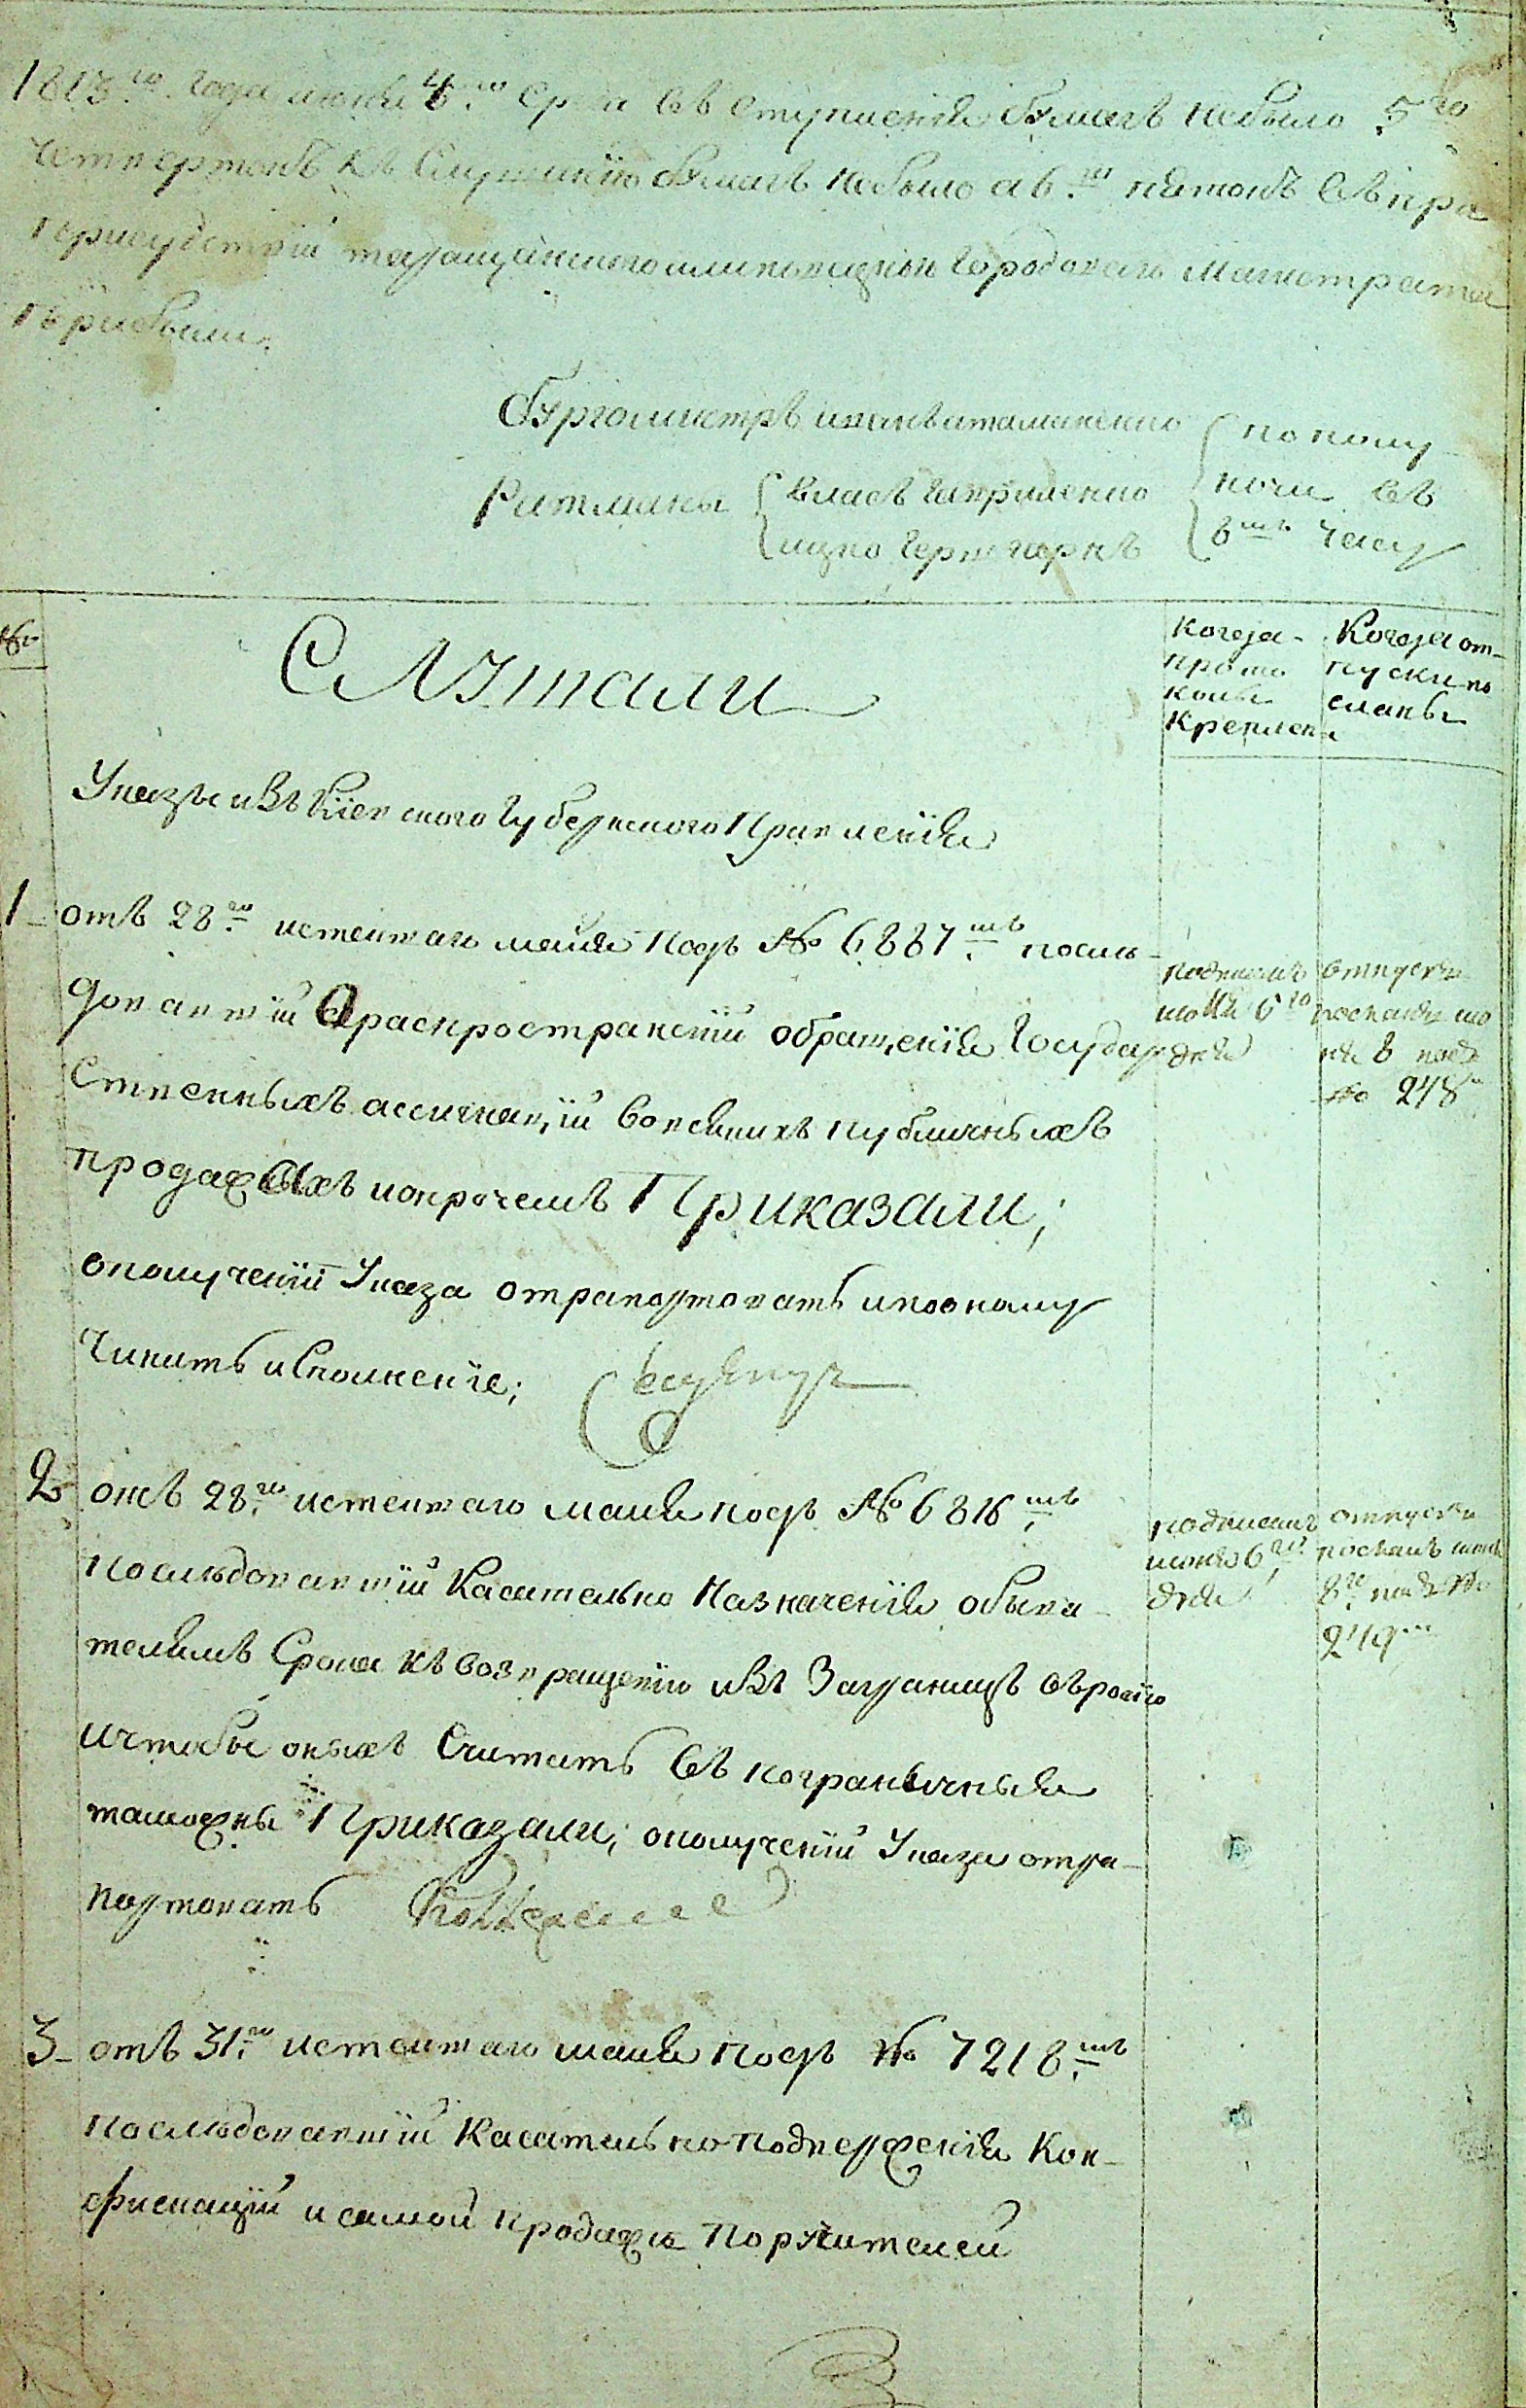 1813го года июня 4го среда въ ступленія бумагъ небыло 5го
Четвертокъ къ Слушанію бумагъ небыло а 6го пятокъ въ
присудствій таращанского городоваго Магистрата
Прибыли
Бургомистръ иванъ
Ратманы
Власъ Гавриленко
ицко
по полу
ночи въ
8мъ часу
№
Слушали
Когда
прото
колы
Креплены
Когда от-
пуски по
сланы
Указы изъ Кіевского Губернского Правленія
1 отъ 28го истекшаго маія подъ № 6887мъ послѣ-
довавшій О распространеній обращенія Государ
Ственныхъ ассигнацій вовсѣхъ публичныхъ
продажахъ ивпрочемъ Приказали;
ополученій Указа отрапортовать ипооному
Чинить иСполненіе;
подписанъ
июня 6го
дня
отпускъ
посланъ ию
ня 8 подъ
№ 248м
2 отъ 28го истекшаго маія подъ № 6816мъ
послѣдовавшій Касательно Назначенія обыва-
телямъ Срока къ возвращенію изъ Заграницъ въ росію
ичтобы оныхъ Считать въ пограничныя
таможны Приказали; ополученій Указа отра-
портовать
подписанъ
июня 6го
дня
отпускъ
посланъ июня
8го подъ №
249м
3 отъ 31го истекшаго маія подъ № 7218мъ
послѣдовавшій Касательно подверженія Кон-
фискацій и самой продажѣ поручителей